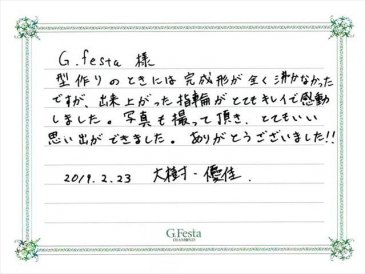 G.festa 様
型作りのときには完成形が全く沸かなかった
ですが、出来上がった指輪がとてもキレイで感動
しました。写真も撮って頂き、とてもいい
思い出ができました。ありがとうございました!!
2019.2.23 大樹・優佳.
G.Festa
DIAMOND